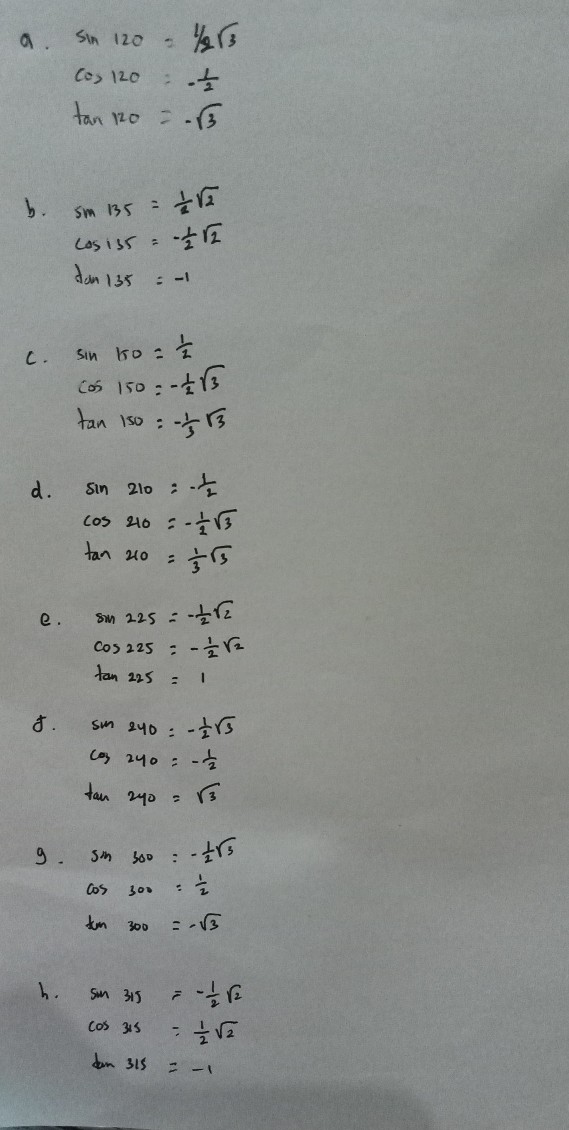 a. sin 120 = 1/2 √3
cos 120 = -1/2
tan 120 = -√3
b. sin 135 = 1/2 √2
cos 135 = -1/2 √2
tan 135 = -1
c. sin 150 = 1/2
cos 150 = -1/2 √3
tan 150 = -1/3 √3
d. sin 210 = -1/2
cos 210 = -1/2 √3
tan 210 = 1/3 √3
e. sin 225 = -1/2 √2
cos 225 = -1/2 √2
tan 225 = 1
f. sin 240 = -1/2 √3
cos 240 = -1/2
tan 240 = √3
g. sin 300 = -1/2 √3
cos 300 = 1/2
tan 300 = -√3
h. sin 315 = -1/2 √2
cos 315 = 1/2 √2
tan 315 = -1